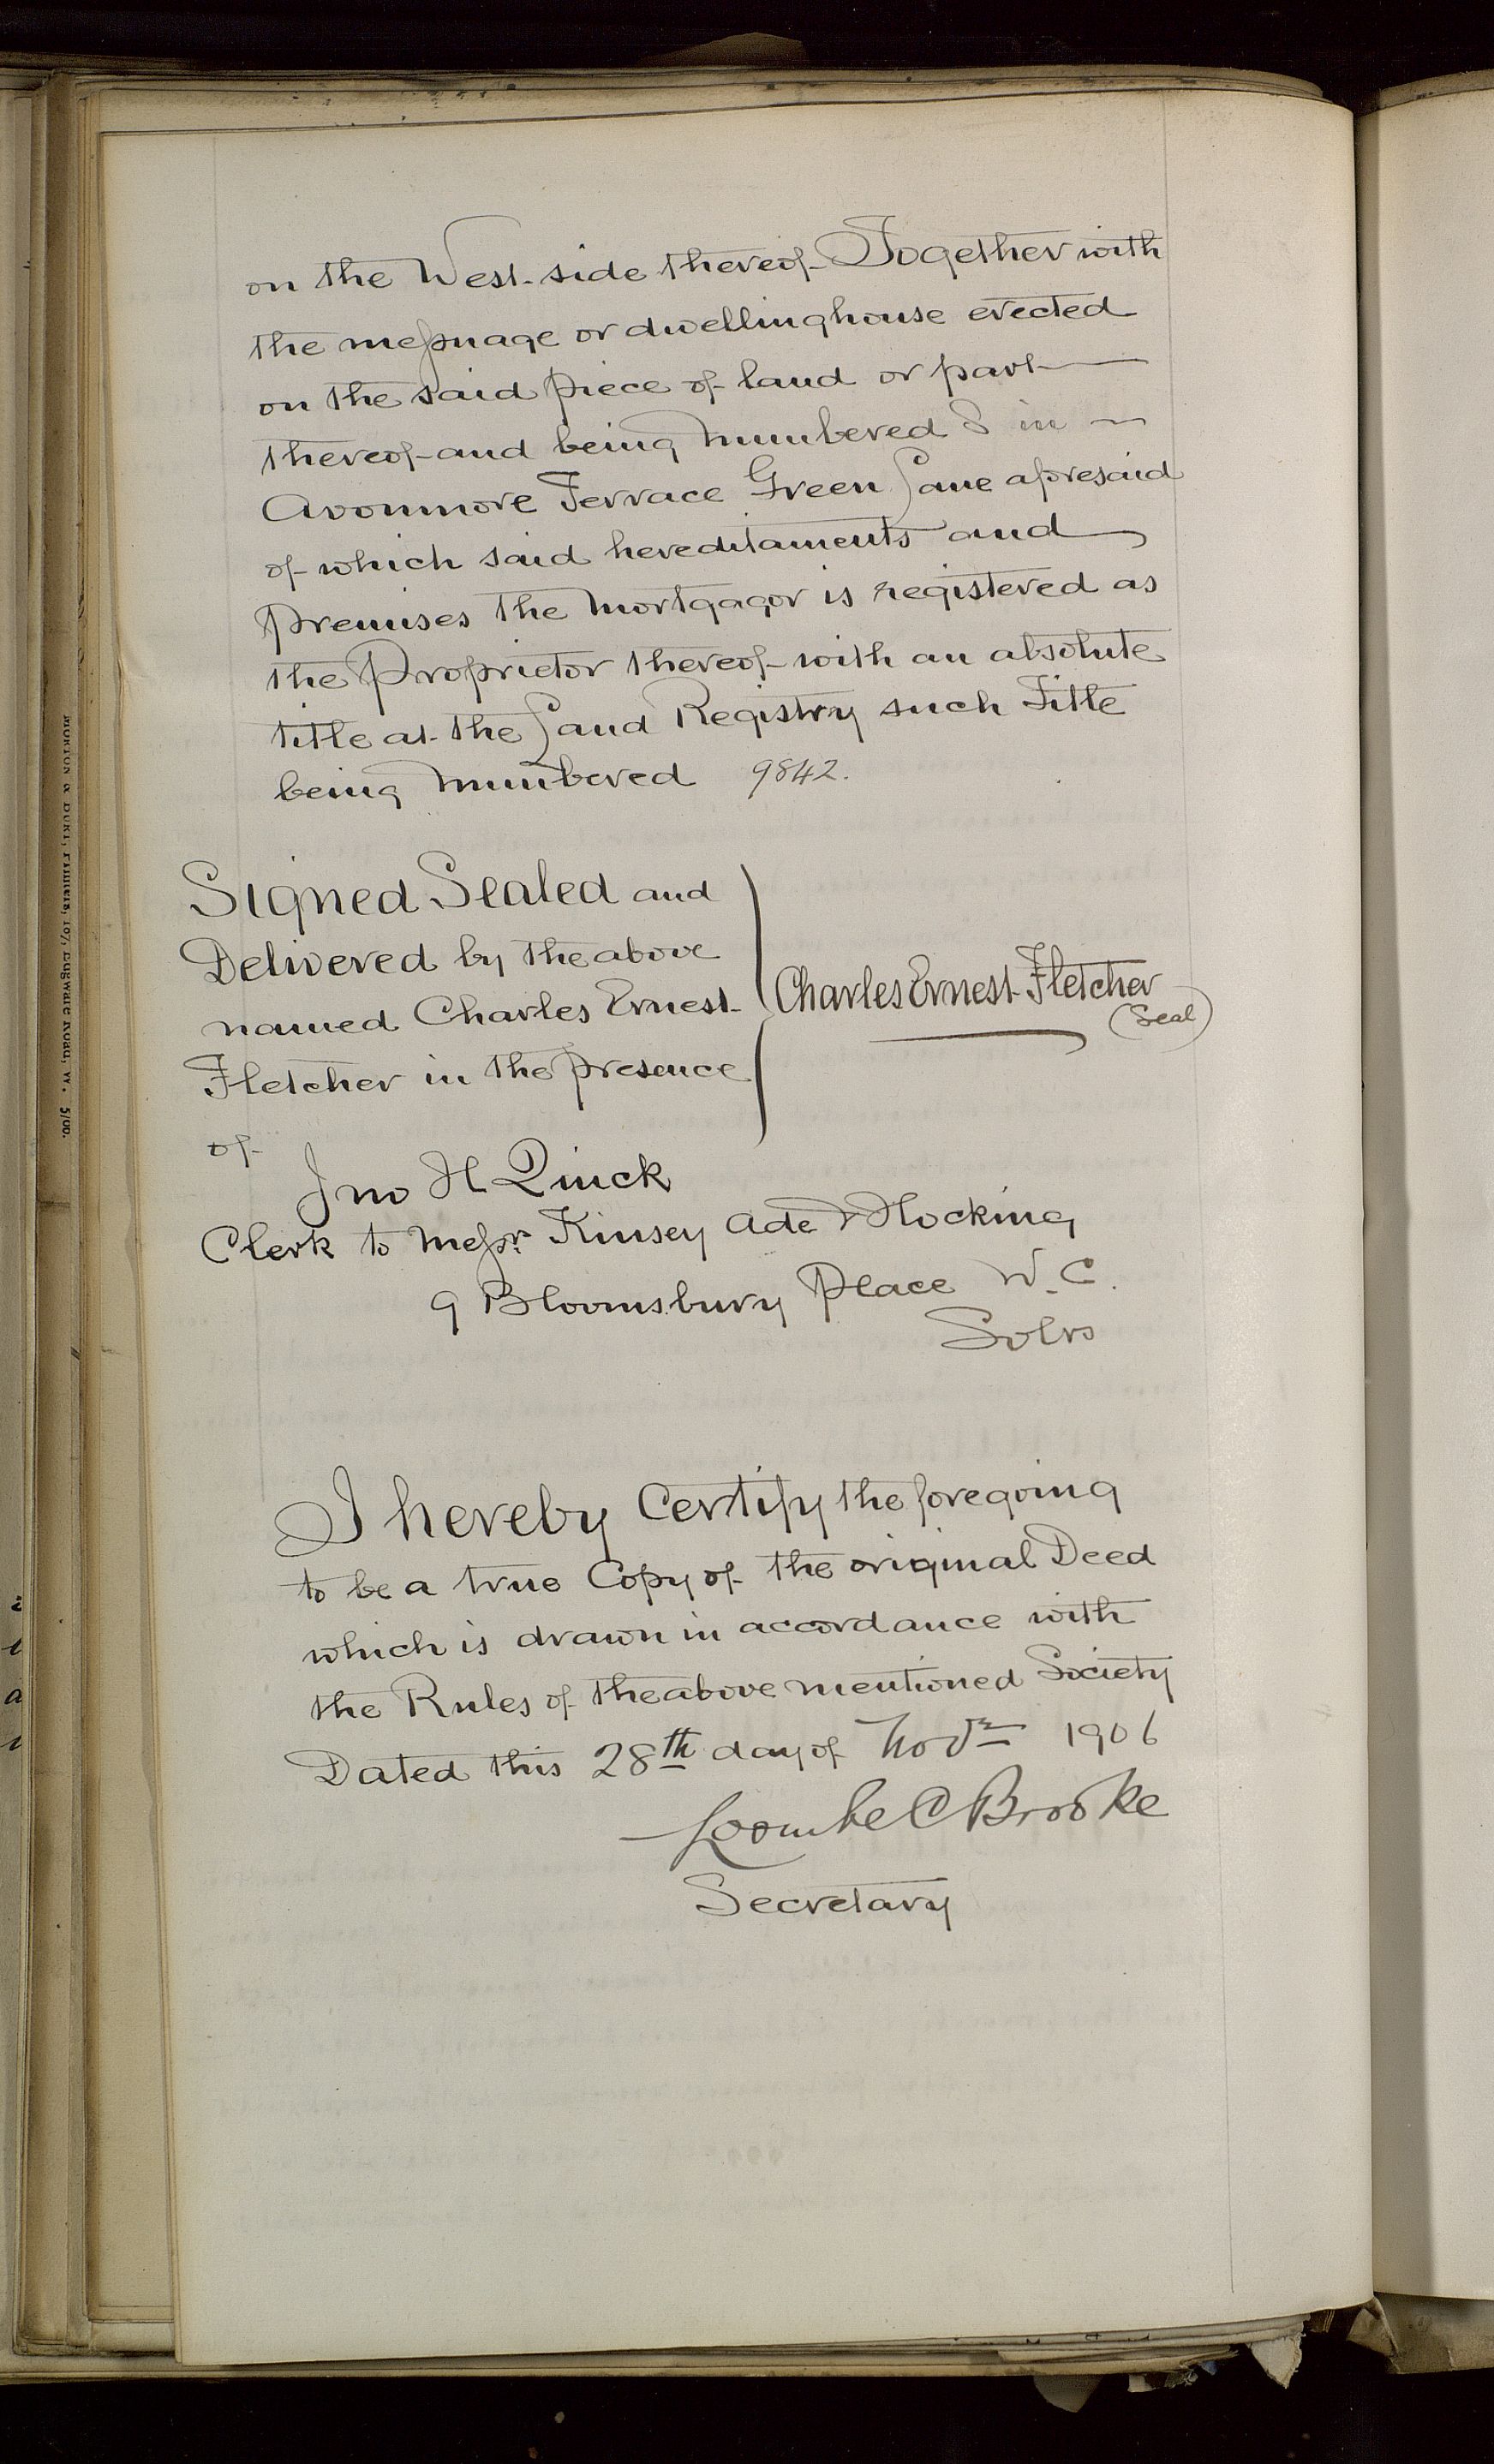 on the West side thereof Together with
the messuage or dwellinghouse erected
on the said piece of land or part
thereof and being numbered 8 in
Avonmore Terrace Green Lane aforesaid
of which said hereditaments and
premises the mortgagor is registered as
the Proprietor thereof with an absolute
title at the Land Registry such Title
being numbered 9842.
Signed Sealed and
Delivered by the above
named Charles Ernest
Fletcher in the presence
of
Charles Ernest Fletcher
(Seal)
Jno H Quick
Clerk to Messrs Kinsey Ade & Hocking
9 Bloomsbury Place W.C.
Solrs
I hereby Certify the foregoing
to be a true Copy of the original Deed
which is drawn in accordance with
the Rules of the above mentioned Society
Dated this 28th day of Novr 1906
Coombe C Brooke
Secretary